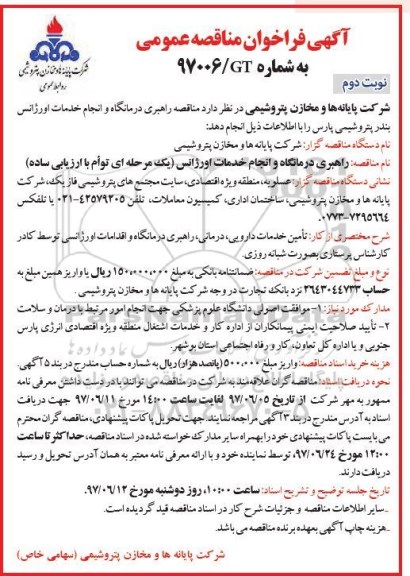 شرکت پایانه‌ها و مخازن پتروشیمی
روابط عمومی
آگهی فراخوان مناقصه عمومی
به شماره GT/۹۷۰۰۶
نوبت دوم
شرکت پایانه‌ها و مخازن پتروشیمی در نظر دارد مناقصه راهبری درمانگاه و انجام خدمات اورژانس
بندر پتروشیمی پارس را با اطلاعات ذیل انجام دهد:
نام دستگاه مناقصه گزار: شرکت پایانه ها و مخازن پتروشیمی
نام مناقصه: راهبری درمانگاه و انجام خدمات اورژانس (یک مرحله ای توأم با ارزیابی ساده)
نشانی دستگاه مناقصه گزار: عسلویه، منطقه ویژه اقتصادی، سایت مجتمع های پتروشیمی فاز یک، شرکت
پایانه ها و مخازن پتروشیمی، ساختمان اداری، کمیسیون معاملات، تلفن ۴۲۵۷۹۲۰۵-۰۲۱ یا تلفکس
۰۷۷۳-۷۲۹۵۶۶۴
شرح مختصری از کار: تأمین خدمات دارویی، درمانی، راهبری درمانگاه و اقدامات اورژانسی توسط کادر
کارشناس پرستاری بصورت شبانه روزی.
نوع و مبلغ تضمین شرکت در مناقصه: ضمانتنامه بانکی به مبلغ ۱۵۰،۰۰۰،۰۰۰ ریال یا واریز همین مبلغ به
حساب ۲۶۴۳۰۴۴۷۳۳ نزد بانک تجارت در وجه شرکت پایانه ها و مخازن پتروشیمی.
مدارک مورد نیاز: ۱- موافقت اصولی دانشگاه علوم پزشکی جهت انجام امور مرتبط با درمان و سلامت
۲- تأیید صلاحیت ایمنی پیمانکاران از اداره کار و خدمات اشتغال منطقه ویژه اقتصادی انرژی پارس
جنوبی و یا اداره کل تعاون، کار و رفاه اجتماعی استان بوشهر.
هزینه خرید اسناد مناقصه: واریز مبلغ ۵۰۰،۰۰۰ (پانصد هزار) ریال به شماره حساب مندرج در بند ۵ آگهی.
نحوه دریافت اسناد: مناقصه گران علاقه مند به شرکت در مناقصه می توانند با در دست داشتن معرفی نامه
ممهور به مهر شرکت از تاریخ ۹۷/۰۶/۰۵ لغایت ساعت ۱۴:۰۰ مورخ ۹۷/۰۶/۱۱ جهت دریافت
اسناد به آدرس مندرج در بند ۳ آگهی مراجعه نمایند. جهت تحویل پاکات پیشنهادی، مناقصه گران محترم
می بایست پاکات پیشنهادی خود را بهمراه سایر مدارک خواسته شده در اسناد مناقصه، حداکثر تا ساعت
۱۲:۰۰ مورخ ۹۷/۰۶/۲۴، توسط نماینده خود و با ارائه معرفی نامه معتبر به همان آدرس تحویل و رسید
دریافت دارند.
تاریخ جلسه توضیح و تشریح اسناد: ساعت ۱۰:۰۰، روز دوشنبه مورخ ۹۷/۰۶/۱۲.
ـ سایر اطلاعات مناقصه و جزئیات شرح کار در اسناد مناقصه قید گردیده است.
ـ هزینه چاپ آگهی بعهده برنده مناقصه می باشد.
شرکت پایانه ها و مخازن پتروشیمی (سهامی خاص)